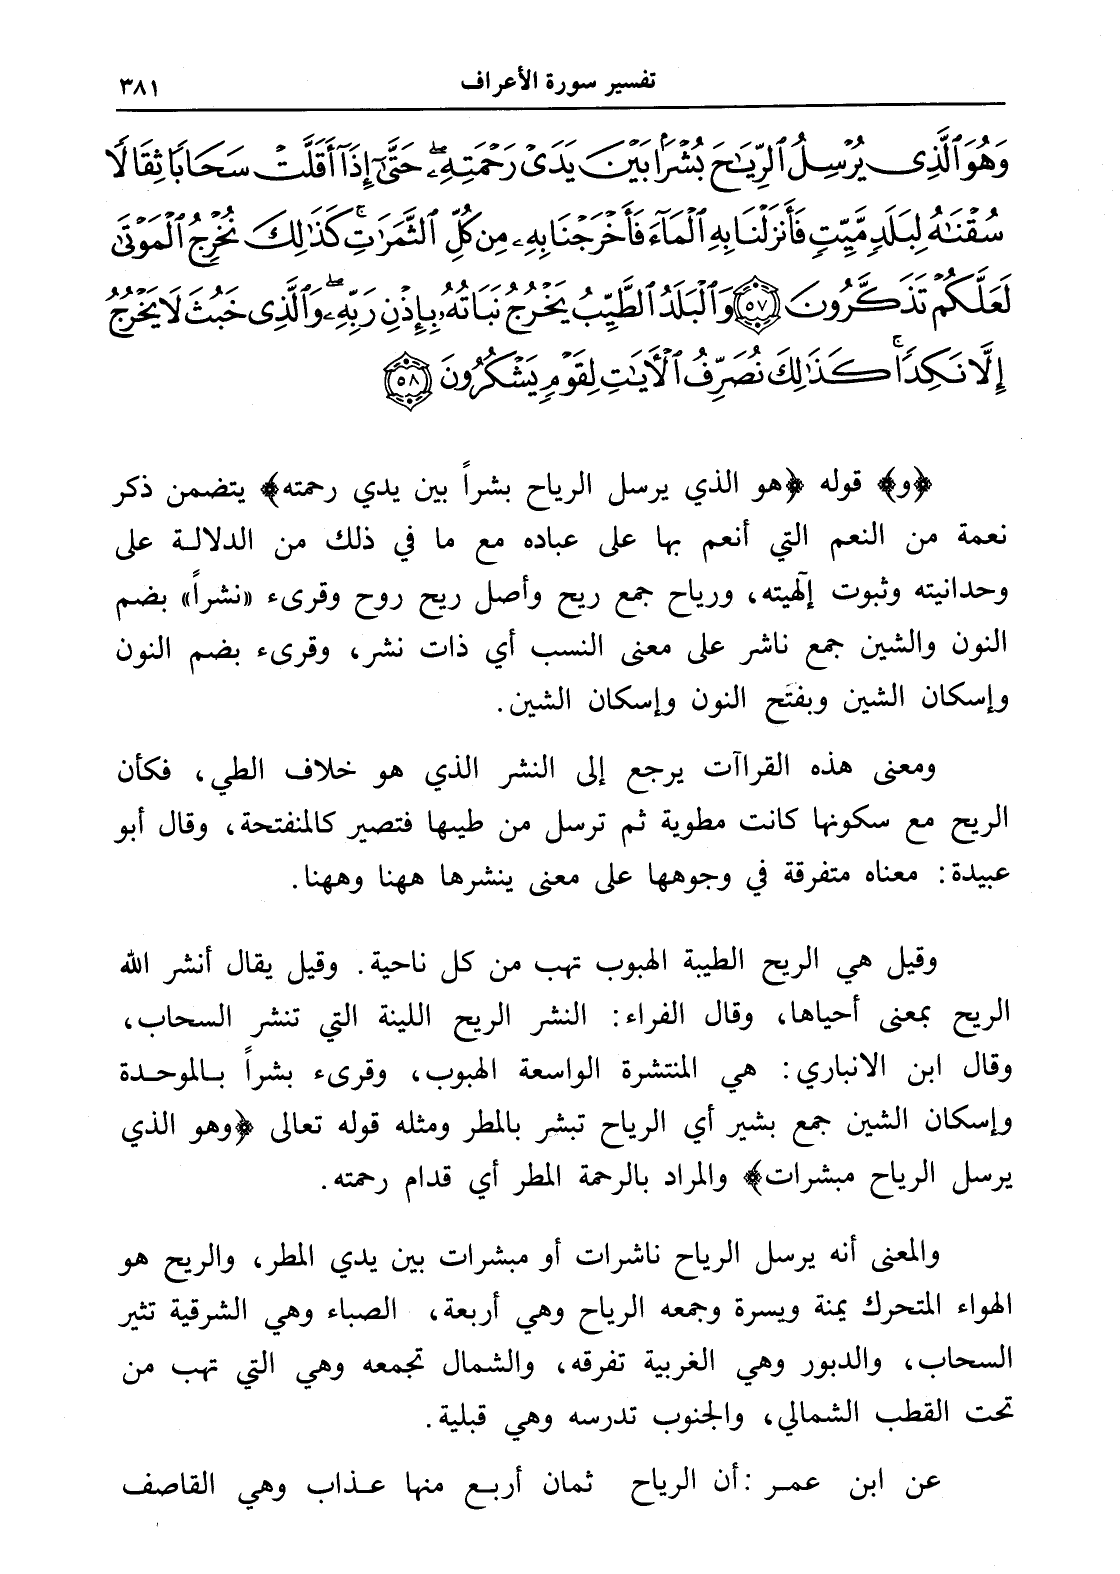 تفسير سورة الأعراف ٣٨١
وَهُوَ ٱلَّذِى يُرْسِلُ ٱلرِّيَٰحَ بُشْرًۢا بَيْنَ يَدَىْ رَحْمَتِهِۦ ۖ حَتَّىٰٓ إِذَآ أَقَلَّتْ سَحَابًا ثِقَالًا
سُقْنَٰهُ لِبَلَدٍ مَّيِّتٍ فَأَنزَلْنَا بِهِ ٱلْمَآءَ فَأَخْرَجْنَا بِهِۦ مِن كُلِّ ٱلثَّمَرَٰتِ ۚ كَذَٰلِكَ نُخْرِجُ ٱلْمَوْتَىٰ
لَعَلَّكُمْ تَذَكَّرُونَ ﴿٥٧﴾ وَٱلْبَلَدُ ٱلطَّيِّبُ يَخْرُجُ نَبَاتُهُۥ بِإِذْنِ رَبِّهِۦ ۖ وَٱلَّذِى خَبُثَ لَا يَخْرُجُ
إِلَّا نَكِدًا ۚ كَذَٰلِكَ نُصَرِّفُ ٱلْأَيَٰتِ لِقَوْمٍ يَشْكُرُونَ ﴿٥٨﴾
﴿و﴾ قوله ﴿هو الذي يرسل الرياح بشراً بين يدي رحمته﴾ يتضمن ذكر
نعمة من النعم التي أنعم بها على عباده مع ما في ذلك من الدلالة على
وحدانيته وثبوت إلٓهيته، ورياح جمع ريح وأصل ريح روح وقرىء «نشراً» بضم
النون والشين جمع ناشر على معنى النسب أي ذات نشر، وقرىء بضم النون
وإسكان الشين وبفتَح النون وإسكان الشين.
ومعنى هذه القراآت يرجع إلى النشر الذي هو خلاف الطي، فكأن
الريح مع سكونها كانت مطوية ثم ترسل من طيها فتصير كالمنفتحة، وقال أبو
عبيدة: معناه متفرقة في وجوهها على معنى ينشرها ههنا وههنا.
وقيل هي الريح الطيبة الهبوب تهب من كل ناحية. وقيل يقال أنشر الله
الريح بمعنى أحياها، وقال الفراء: النشر الريح اللينة التي تنشر السحاب،
وقال ابن الانباري: هي المنتشرة الواسعة الهبوب، وقرىء بشراً بالموحدة
وإسكان الشين جمع بشير أي الرياح تبشر بالمطر ومثله قوله تعالى ﴿وهو الذي
يرسل الرياح مبشرات﴾ والمراد بالرحمة المطر أي قدام رحمته.
والمعنى أنه يرسل الرياح ناشرات أو مبشرات بين يدي المطر، والريح هو
الهواء المتحرك يمنة ويسرة وجمعه الرياح وهي أربعة، الصباء وهي الشرقية تثير
السحاب، والدبور وهي الغربية تفرقه، والشمال تجمعه وهي التي تهب من
تحت القطب الشمالي، والجنوب تدرسه وهي قبلية.
عن ابن عمر :أن الرياح ثمان أربع منها عذاب وهي القاصف